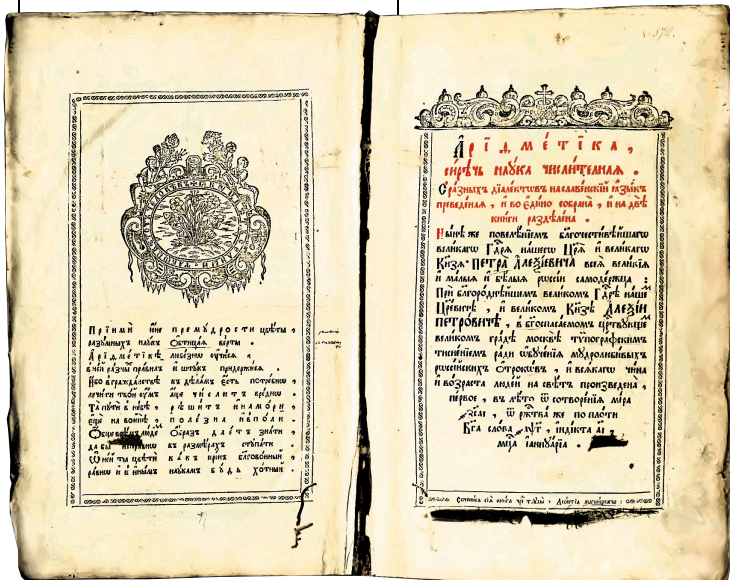 Прїими юне премудрости цвѣты ,
разумныхъ наукъ обтицая верты .
Арїѳметїкѣ любезнѡ оучисѧ ,
в ней разных правилъ и штукъ придержисѧ
Ибо в гражданствѣ к дѣламъ есть потребнѡ
лечити твой оумъ аще числитъ вредно
Та пути в небѣ , рѣшитъ и на мори ,
еще на войнѣ , полезна и в поли .
Обще всѣмъ люде образъ даетъ знати ,
дабы исправнѡ в размѣрахъ ступати
Ѿ неѧ ты цвѣти какъ кринъ благовонный
равнѡ и к инымъ наукамъ будь хотный
№ 572.
Арїѳме́тїка ,
сирѣчь наꙋка числителнаѧ .
С разныхъ дїалектѡвъ на славенскїй ꙗзыкъ
преведенаѧ , и во едино собрана , и на двѣ
книги раздѣлена .
Нынѣ же повелѣнїемъ благочестивѣйшагѡ
великагѡ Гдⷭ҇рѧ нашегѡ Цр҃ѧ и великагѡ
Кн҃зѧ Петра Алеѯїевича всеѧ великїѧ
и малыѧ и бѣлыѧ рѡссїи самодержца :
При благороднѣйшемъ великомъ Гдⷭ҇рѣ нашемъ
Цр҃евичѣ , и великомъ Кн҃зѣ Алеѯїи
Петровичѣ , в бг҃оспасаемомъ царствующемъ
великомъ градѣ москвѣ тѵпографскимъ
тисненїемъ ради ѡбꙋченїѧ мꙋдролюбивыхъ
рѡссїйскихъ отрокѡвъ , и всѧкагѡ чина
и возраста людей на свѣтъ произведена ,
первое , в лѣто ѿ сотворенїѧ мїра
҂зсаı , ѿ ржⷭ҇тва же по плоти
Бг҃а слова ҂аѱг , їндїкта аı
мцⷭ҇а їаннꙋарїа .
Сочинисѧ сїѧ книга чрез труды Леонтїѧ магницкагѡ :